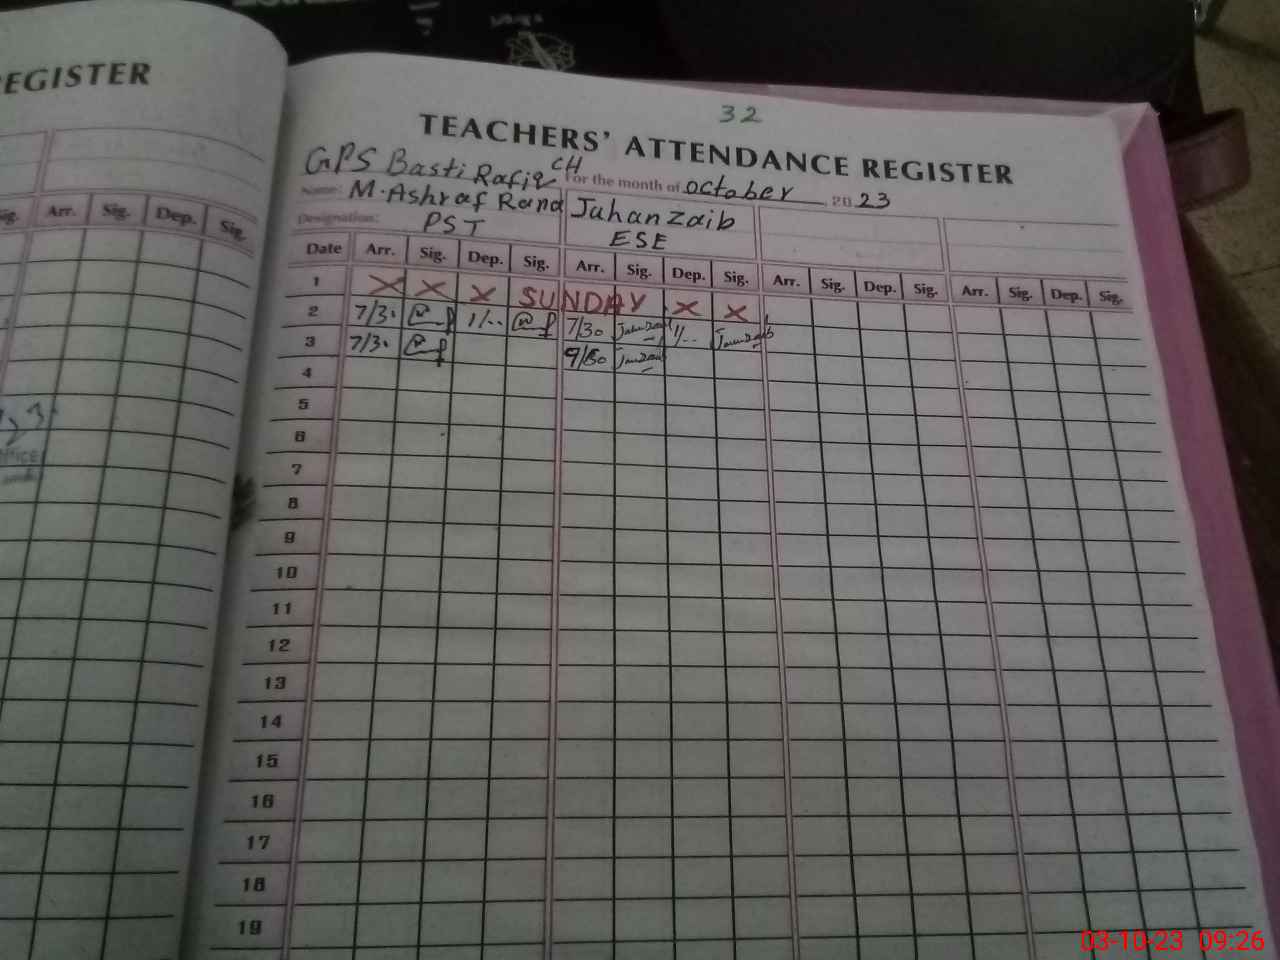 REGISTER
Sig. Arr. Sig. Dep. Sig.
32
TEACHERS' ATTENDANCE REGISTER
GPS Basti Rafiq CH For the month of October 2023
Name: M. Ashraf Rana Jahanzaib
Designation: PST ESE
Date Arr. Sig. Dep. Sig. Arr. Sig. Dep. Sig. Arr. Sig. Dep. Sig. Arr. Sig. Dep. Sig.
1 X X X SUNDAY X X
2 7/30 1/.. 7/30 Jahanzaib 1/.. Jahanzaib
3 7/30 Jahanzaib
4
5
6
7
8
9
10
11
12
13
14
15
16
17
18
19
03-10-23 09:26